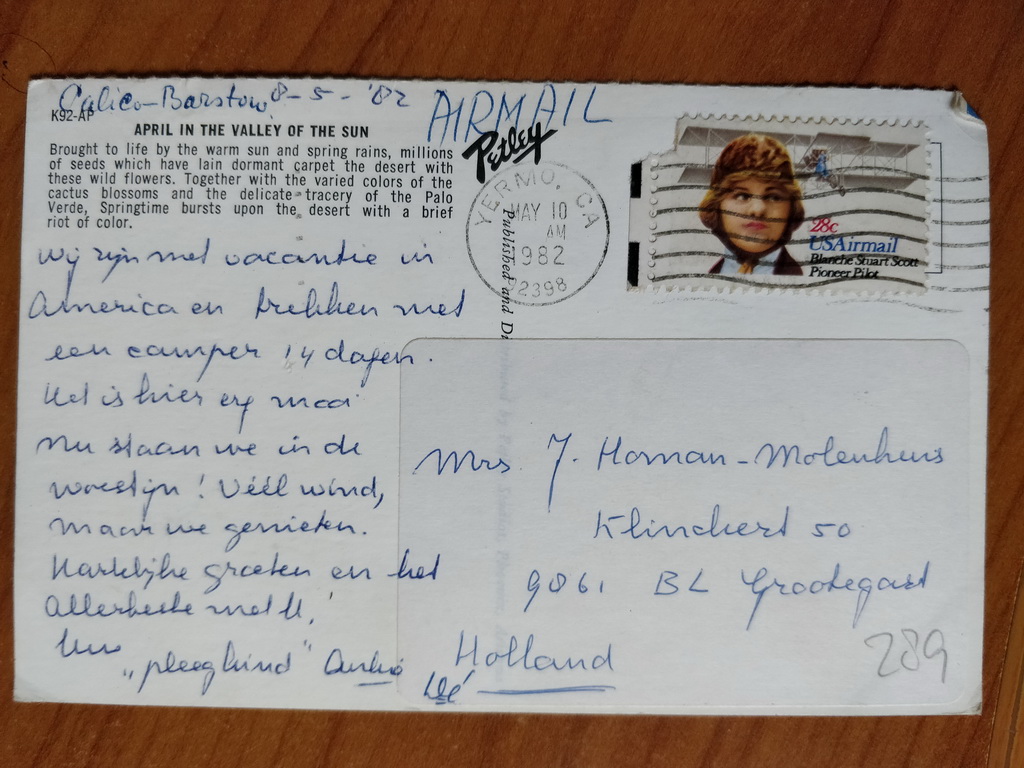 Calico-Barstow 8-5-'82
AIRMAIL
K92-AP
APRIL IN THE VALLEY OF THE SUN
Brought to life by the warm sun and spring rains, millions
of seeds which have lain dormant carpet the desert with
these wild flowers. Together with the varied colors of the
cactus blossoms and the delicate tracery of the Palo
Verde, Springtime bursts upon the desert with a brief
riot of color.
Petley
Published and
YERMO, CA
MAY 10
AM
1982
92398
28c
USAirmail
Blanche Stuart Scott
Pioneer Pilot
Wij zijn met vacantie in
America en trekken met
een camper 14 dagen.
Het is hier erg mooi
Nu staan we in de
woestijn! Véél wind,
maar we genieten.
Hartelijke groeten en het
Allerbeste met U,
Uw
"pleegkind"
Mrs. J. Homan-Molenhuis
Klinckert 50
9861 BL Grootegast
Holland
289